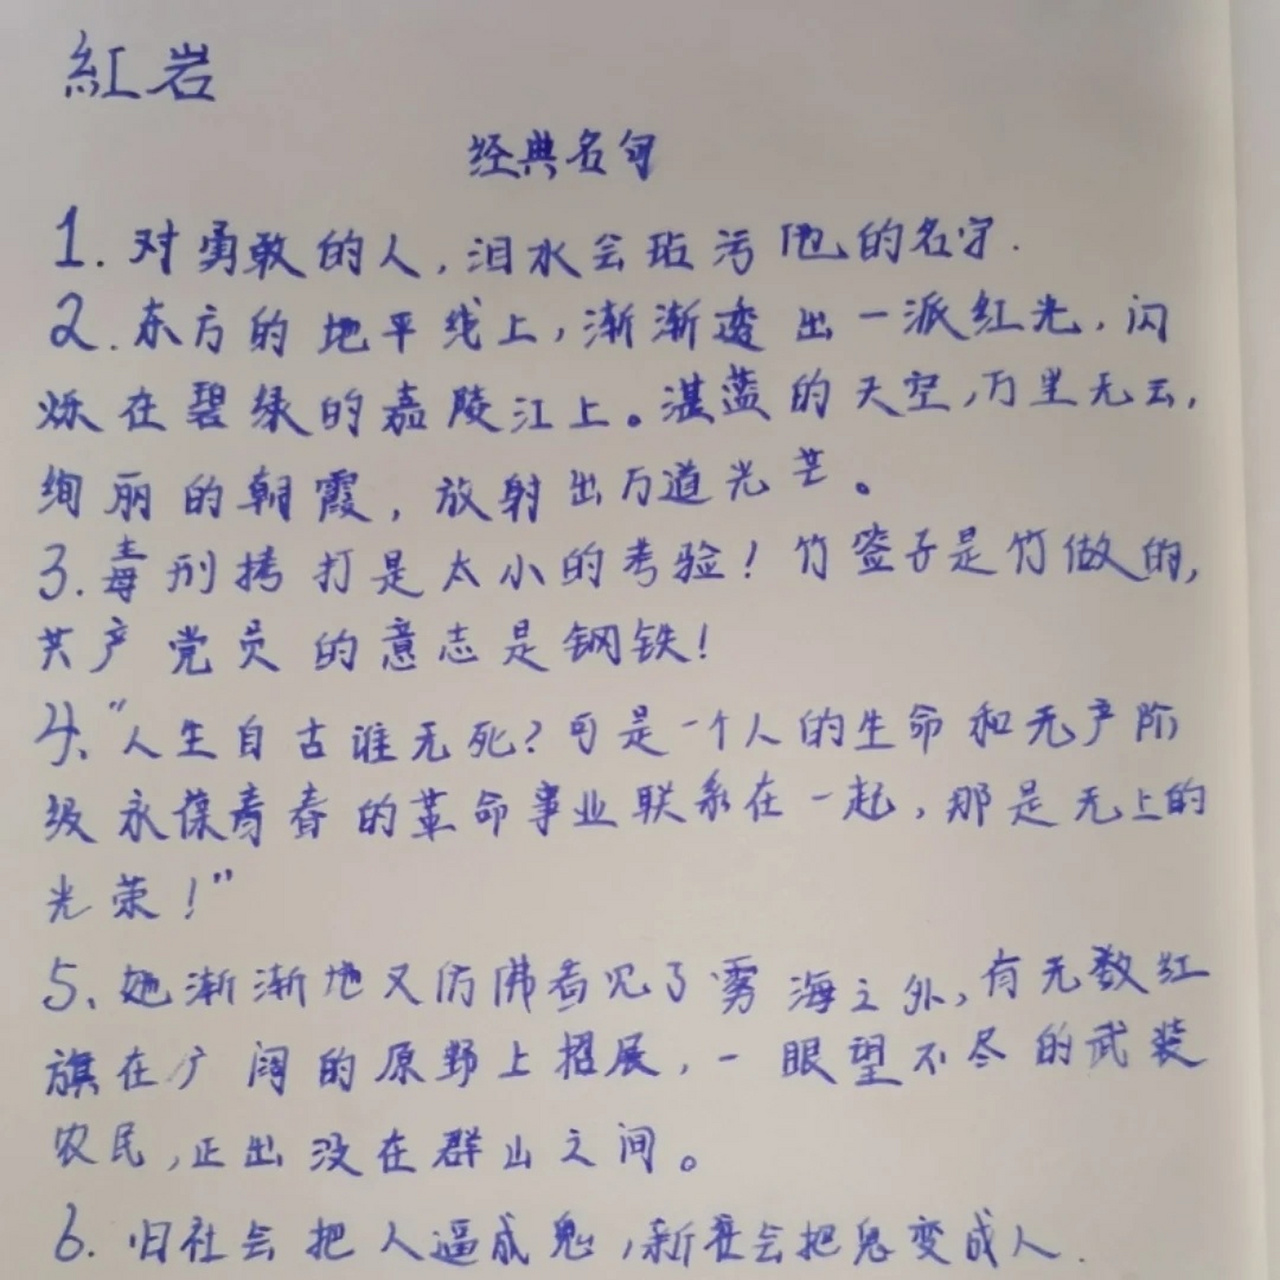 紅岩
经典名句
1. 对勇敢的人,泪水会玷污他的名字.
2. 东方的地平线上,渐渐透出一派红光,闪
烁在碧绿的嘉陵江上。湛蓝的天空,万里无云,
绚丽的朝霞,放射出万道光芒。
3. 毒刑拷打是太小的考验!竹签子是竹做的,
共产党员的意志是钢铁!
4、“人生自古谁无死?可是一个人的生命和无产阶
级永葆青春的革命事业联系在一起,那是无上的
光荣!”
5、她渐渐地又仿佛看见了雾海之外,有无数红
旗在广阔的原野上招展,一眼望不尽的武装
农民,正出没在群山之间。
6. 旧社会把人逼成鬼,新社会把鬼变成人.